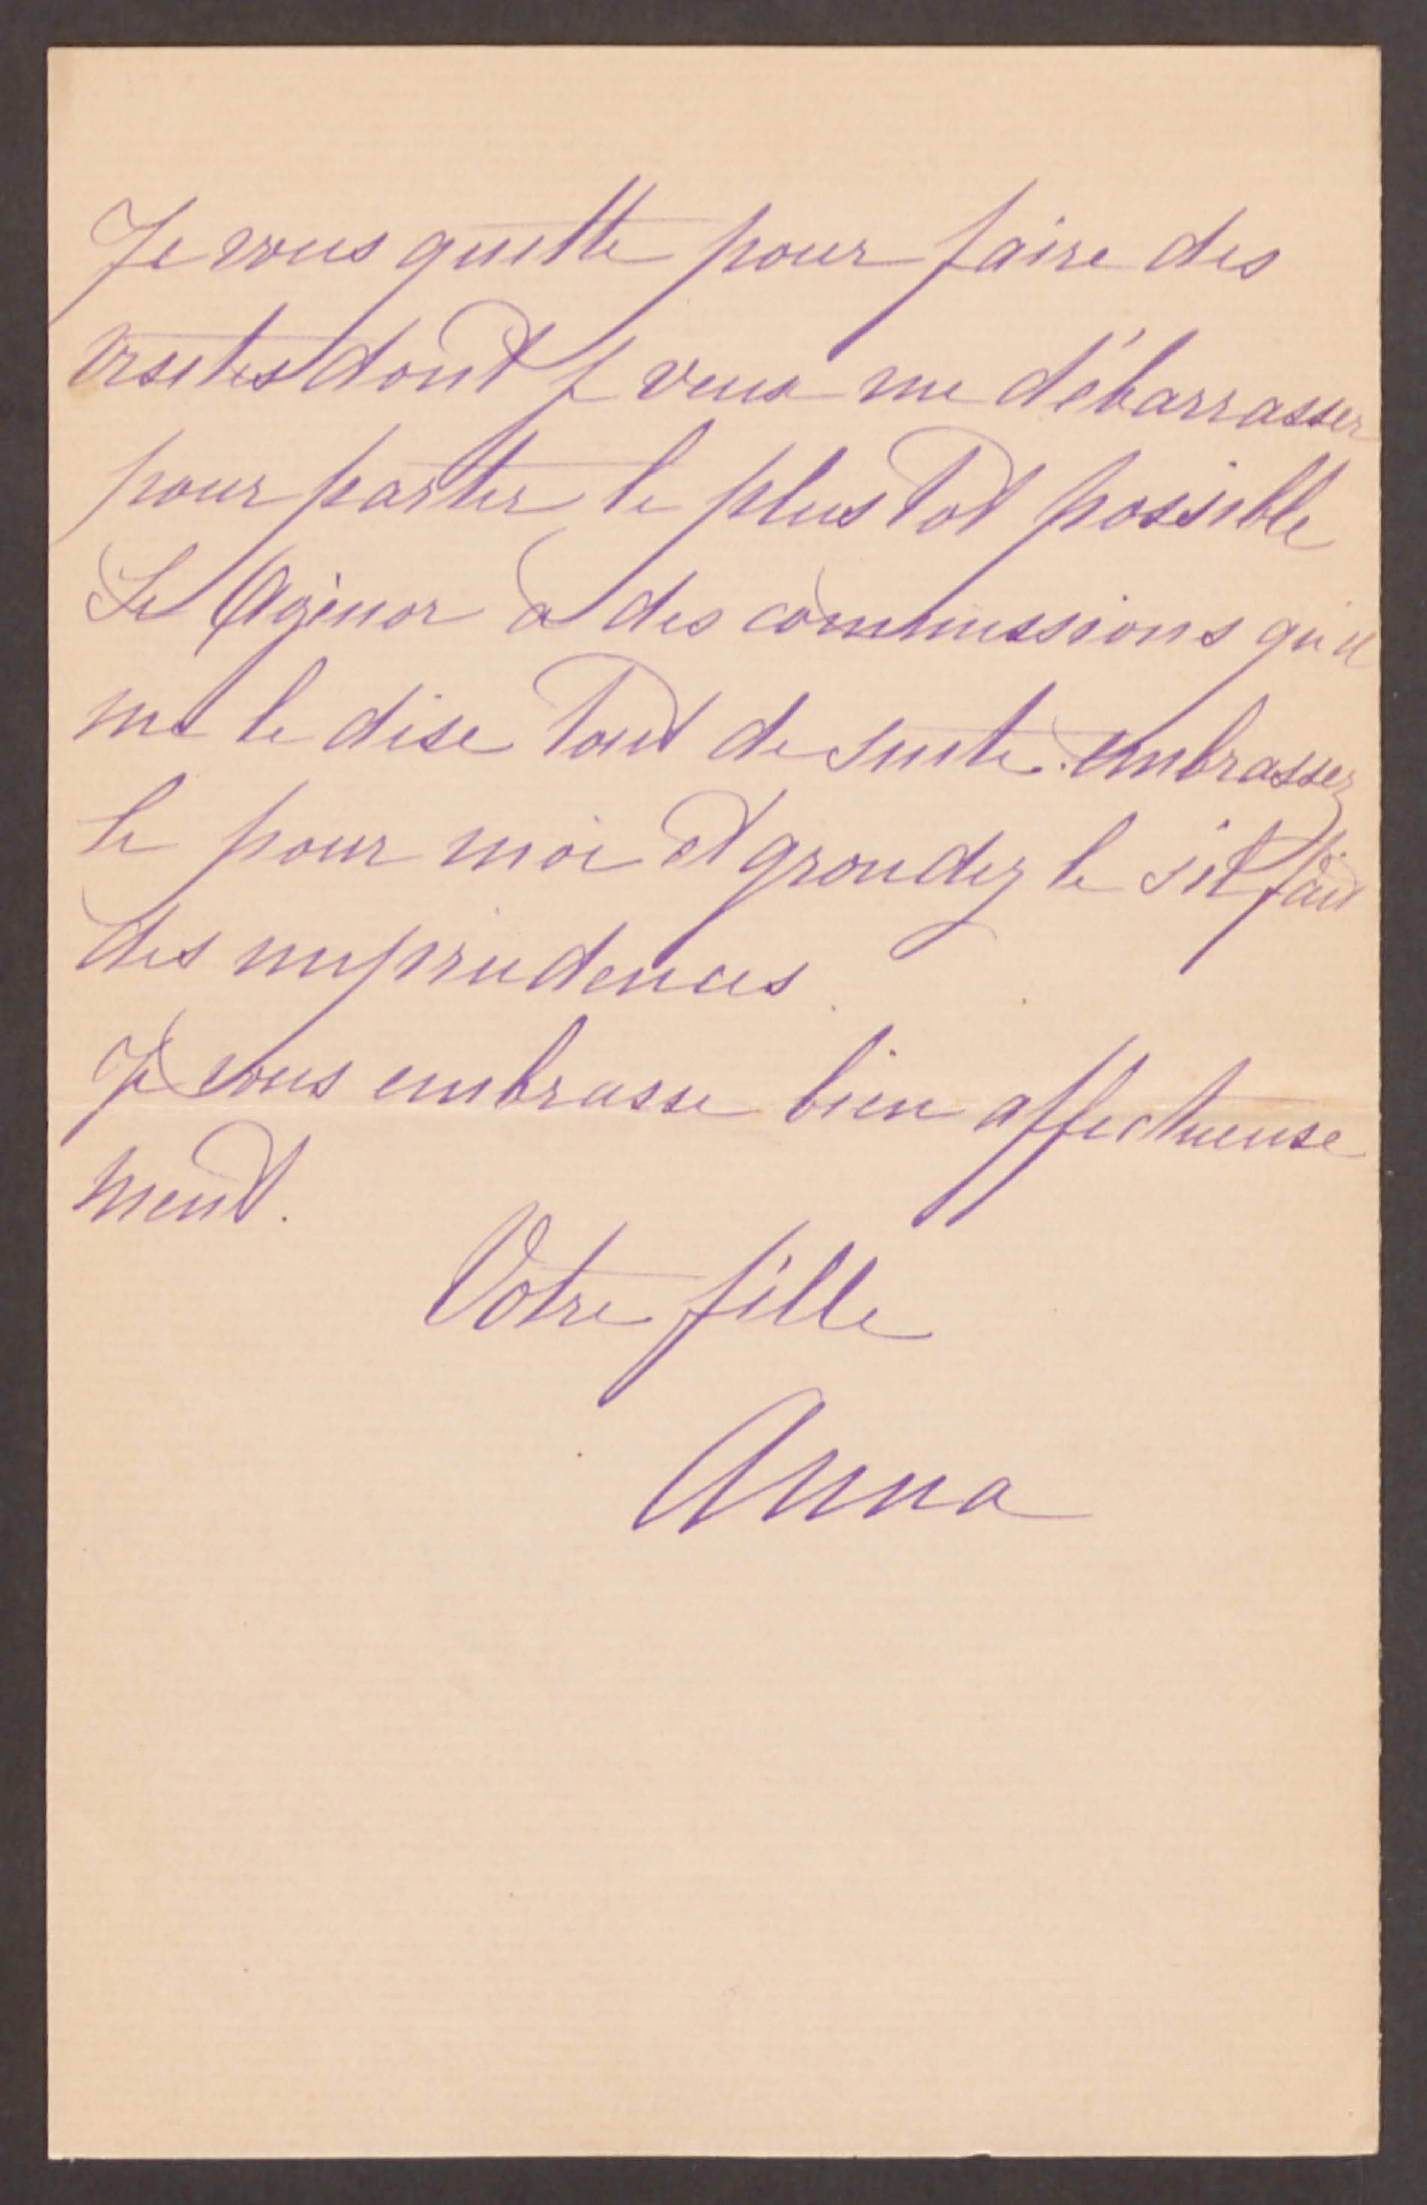 Je vous quitte pour faire des
visites dont je veux me débarrasser
pour partir le plus tot possible
Si Agénor a des commissions qu'il
me le dise tout de suite. embrassez
le pour moi et grondez le s'il fait
des imprudences.
Je vous embrasse bien affectueuse
ment.
Votre fille
Anna